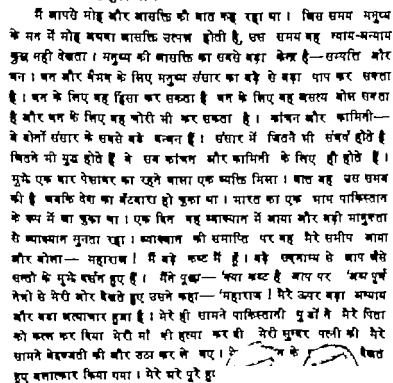 मैं आपसे मोह और आसक्ति की बात कह रहा था । जिस समय मनुष्य
के मन में मोह अथवा आसक्ति उत्पन्न होती है, उस समय वह न्याय-अन्याय
कुछ नहीं देखता । मनुष्य की आसक्ति का सबसे बड़ा केन्द्र है—सम्पत्ति और
धन । धन और वैभव के लिए मनुष्य संसार का बड़े से बड़ा पाप कर सकता
है । धन के लिए वह हिंसा कर सकता है धन के लिए वह असत्य बोल सकता
है और धन के लिए वह चोरी भी कर सकता है । कांचन और कामिनी—
ये दोनों संसार के सबसे बड़े बन्धन हैं । संसार में जितने भी संघर्ष होते हैं
जितने भी युद्ध होते हैं वे सब कांचन और कामिनी के लिए ही होते हैं ।
मुझे एक बार पेशावर का रहने वाला एक व्यक्ति मिला । बात यह उस समय
की है जबकि देश का बँटवारा हो चुका था । भारत का एक भाग पाकिस्तान
के रूप में जा चुका था । एक दिन वह व्याख्यान में आया और बड़ी भावुकता
से व्याख्यान सुनता रहा । व्याख्यान की समाप्ति पर वह मेरे समीप आया
और बोला— महाराज ! मैं बड़े कष्ट में हूँ । बड़े सद्भाग्य से आप जैसे
सन्तों के मुझे दर्शन हुए हैं । मैंने पूछा— 'क्या कष्ट है आप पर अश्रु पूर्ण
नेत्रों से मेरी ओर देखते हुए उसने कहा— 'महाराज ! मेरे ऊपर बड़ा अन्याय
और बड़ा अत्याचार हुआ है । मेरे ही सामने पाकिस्तानी गुंडों ने मेरे पिता
को कत्ल कर दिया मेरी माँ की हत्या कर दी मेरी सुन्दर पत्नी की मेरे
सामने बेइज्जती की और उठा कर ले गए । के देखते
हुए बलात्कार किया गया । मेरे भरे पूरे